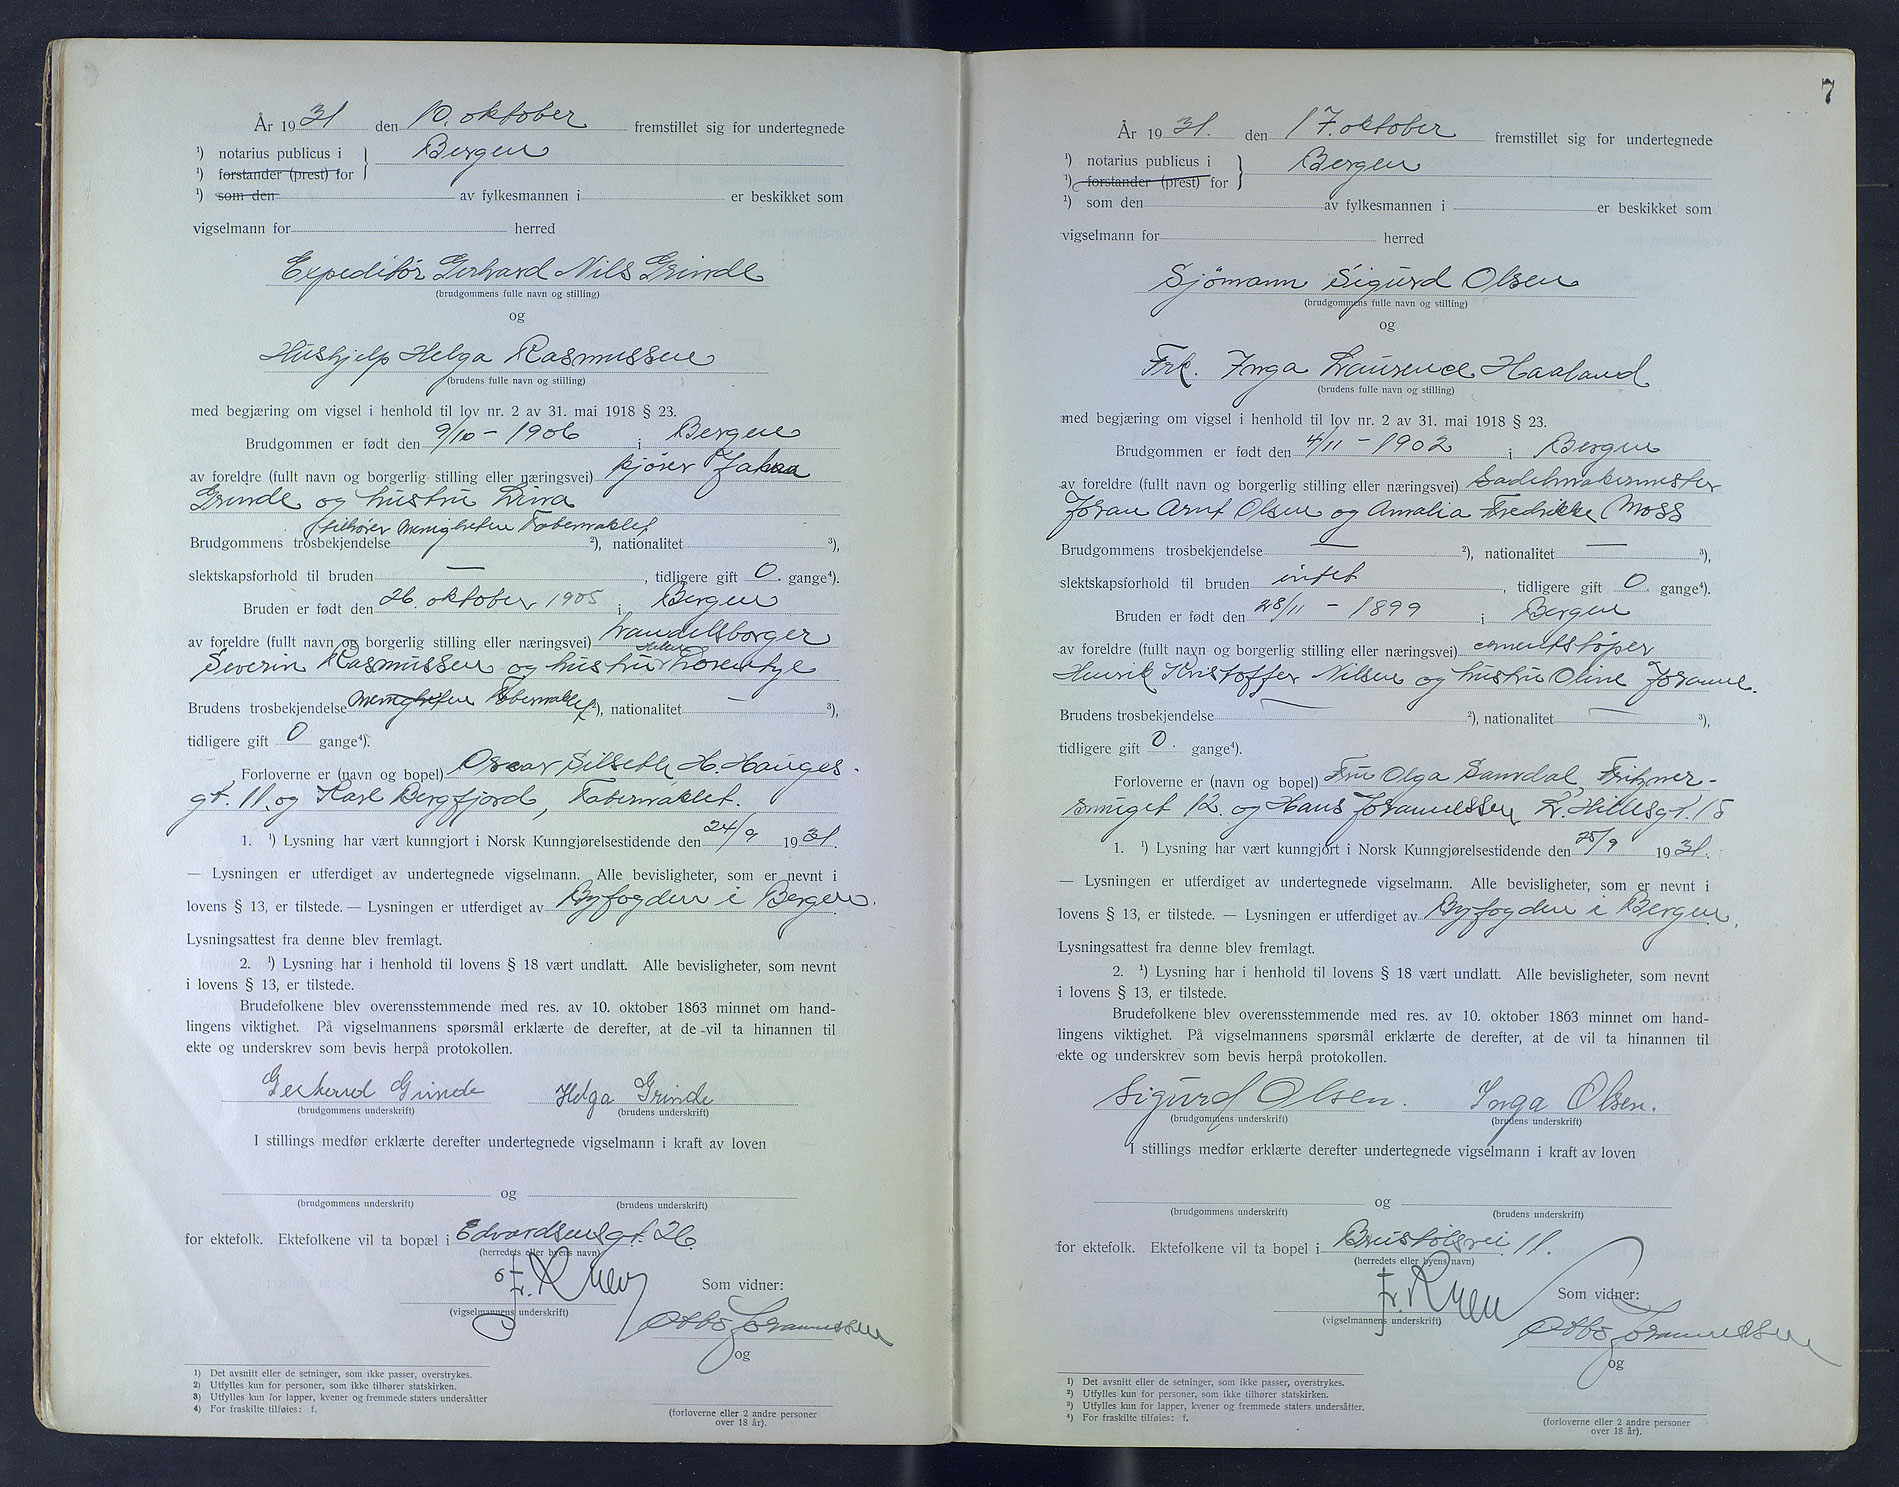 År 1931 den 10. oktober fremstillet sig for undertegnede
¹) notarius publicus i } Bergen
¹) forstander (prest) for
¹) som den av fylkesmannen i er beskikket som
vigselmann for herred
Expeditør Gerhard Nils Grinde
(brudgommens fulle navn og stilling)
og
Hushjelp Helga Rasmussen
(brudens fulle navn og stilling)
med begjæring om vigsel i henhold til lov nr. 2 av 31. mai 1918 § 23.
Brudgommen er født den 9/10 - 1906 i Bergen
av foreldre (fullt navn og borgerlig stilling eller næringsvei) kjører Johan
Grinde og hustru Lina
tilhører menigheten Tabernaklet
Brudgommens trosbekjendelse ²), nationalitet ³),
slektskapsforhold til bruden — , tidligere gift 0. gange⁴).
Bruden er født den 26. oktober 1905 i Bergen
av foreldre (fullt navn og borgerlig stilling eller næringsvei) handelsborger
Severin Rasmussen og hustru
Brudens trosbekjendelse menigheten Tabernaklet ²), nationalitet — ³),
tidligere gift 0 gange⁴).
Forloverne er (navn og bopel) Oscar Silseth, H. Hauges-
gt. 11. og Karl Bergfjord, Tabernaklet.
1. ¹) Lysning har vært kunngjort i Norsk Kunngjørelsestidende den 24/9 1931.
— Lysningen er utferdiget av undertegnede vigselmann. Alle bevisligheter, som er nevnt i
lovens § 13, er tilstede. — Lysningen er utferdiget av Byfogden i Bergen.
Lysningsattest fra denne blev fremlagt.
2. ¹) Lysning har i henhold til lovens § 18 vært undlatt. Alle bevisligheter, som nevnt
i lovens § 13, er tilstede.
Brudefolkene blev overensstemmende med res. av 10. oktober 1863 minnet om hand-
lingens viktighet. På vigselmannens spørsmål erklærte de derefter, at de vil ta hinannen til
ekte og underskrev som bevis herpå protokollen.
Gerhard Grinde Helga Grinde
(brudgommens underskrift) (brudens underskrift)
I stillings medfør erklærte derefter undertegnede vigselmann i kraft av loven
og
(brudgommens underskrift) (brudens underskrift)
for ektefolk. Ektefolkene vil ta bopæl i Edvardsensgt. 26.
(herredets eller byens navn)
Som vidner:
(vigselmannens underskrift)
Otto Johannessen
og
¹) Det avsnitt eller de setninger, som ikke passer, overstrykes.
²) Utfylles kun for personer, som ikke tilhører statskirken.
³) Utfylles kun for lapper, kvener og fremmede staters undersåtter
⁴) For fraskilte tilføies: f.
(forloverne eller 2 andre personer
over 18 år).
7
År 1931. den 17. oktober fremstillet sig for undertegnede
¹) notarius publicus i } Bergen
¹) forstander (prest) for
¹) som den av fylkesmannen i er beskikket som
vigselmann for herred
Sjømann Sigurd Olsen
(brudgommens fulle navn og stilling)
og
Frk. Inga Laurence Haaland
(brudens fulle navn og stilling)
med begjæring om vigsel i henhold til lov nr. 2 av 31. mai 1918 § 23.
Brudgommen er født den 4/11 - 1902 i Bergen
av foreldre (fullt navn og borgerlig stilling eller næringsvei) Sadelmakermester
Johan Arnt Olsen og Amalia Fredrikke Moss
Brudgommens trosbekjendelse — ²), nationalitet — ³),
slektskapsforhold til bruden intet , tidligere gift 0. gange⁴).
Bruden er født den 28/11 - 1899 i Bergen
av foreldre (fullt navn og borgerlig stilling eller næringsvei) cementstøper
Henrik Kristoffer Nilsen og hustru Oline Johanne.
Brudens trosbekjendelse — ²), nationalitet — ³),
tidligere gift 0. gange⁴).
Forloverne er (navn og bopel) Fru Olga Samdal, Fritzner-
smuget 12. og Hans Johannessen, L. Hillesgt. 15
1. ¹) Lysning har vært kunngjort i Norsk Kunngjørelsestidende den 25/9 1931.
— Lysningen er utferdiget av undertegnede vigselmann. Alle bevisligheter, som er nevnt i
lovens § 13, er tilstede. — Lysningen er utferdiget av Byfogden i Bergen.
Lysningsattest fra denne blev fremlagt.
2. ¹) Lysning har i henhold til lovens § 18 vært undlatt. Alle bevisligheter, som nevnt
i lovens § 13, er tilstede.
Brudefolkene blev overensstemmende med res. av 10. oktober 1863 minnet om hand-
lingens viktighet. På vigselmannens spørsmål erklærte de derefter, at de vil ta hinannen til
ekte og underskrev som bevis herpå protokollen.
Sigurd Olsen. Inga Olsen.
(brudgommens underskrift) (brudens underskrift)
I stillings medfør erklærte derefter undertegnede vigselmann i kraft av loven
og
(brudgommens underskrift) (brudens underskrift)
for ektefolk. Ektefolkene vil ta bopel i Brustølsvei 11.
(herredets eller byens navn)
Som vidner:
(vigselmannens underskrift)
Otto Johannessen
og
¹) Det avsnitt eller de setninger, som ikke passer, overstrykes.
²) Utfylles kun for personer, som ikke tilhører statskirken.
³) Utfylles kun for lapper, kvener og fremmede staters undersåtter.
⁴) For fraskilte tilføies: f.
(forloverne eller 2 andre personer
over 18 år).